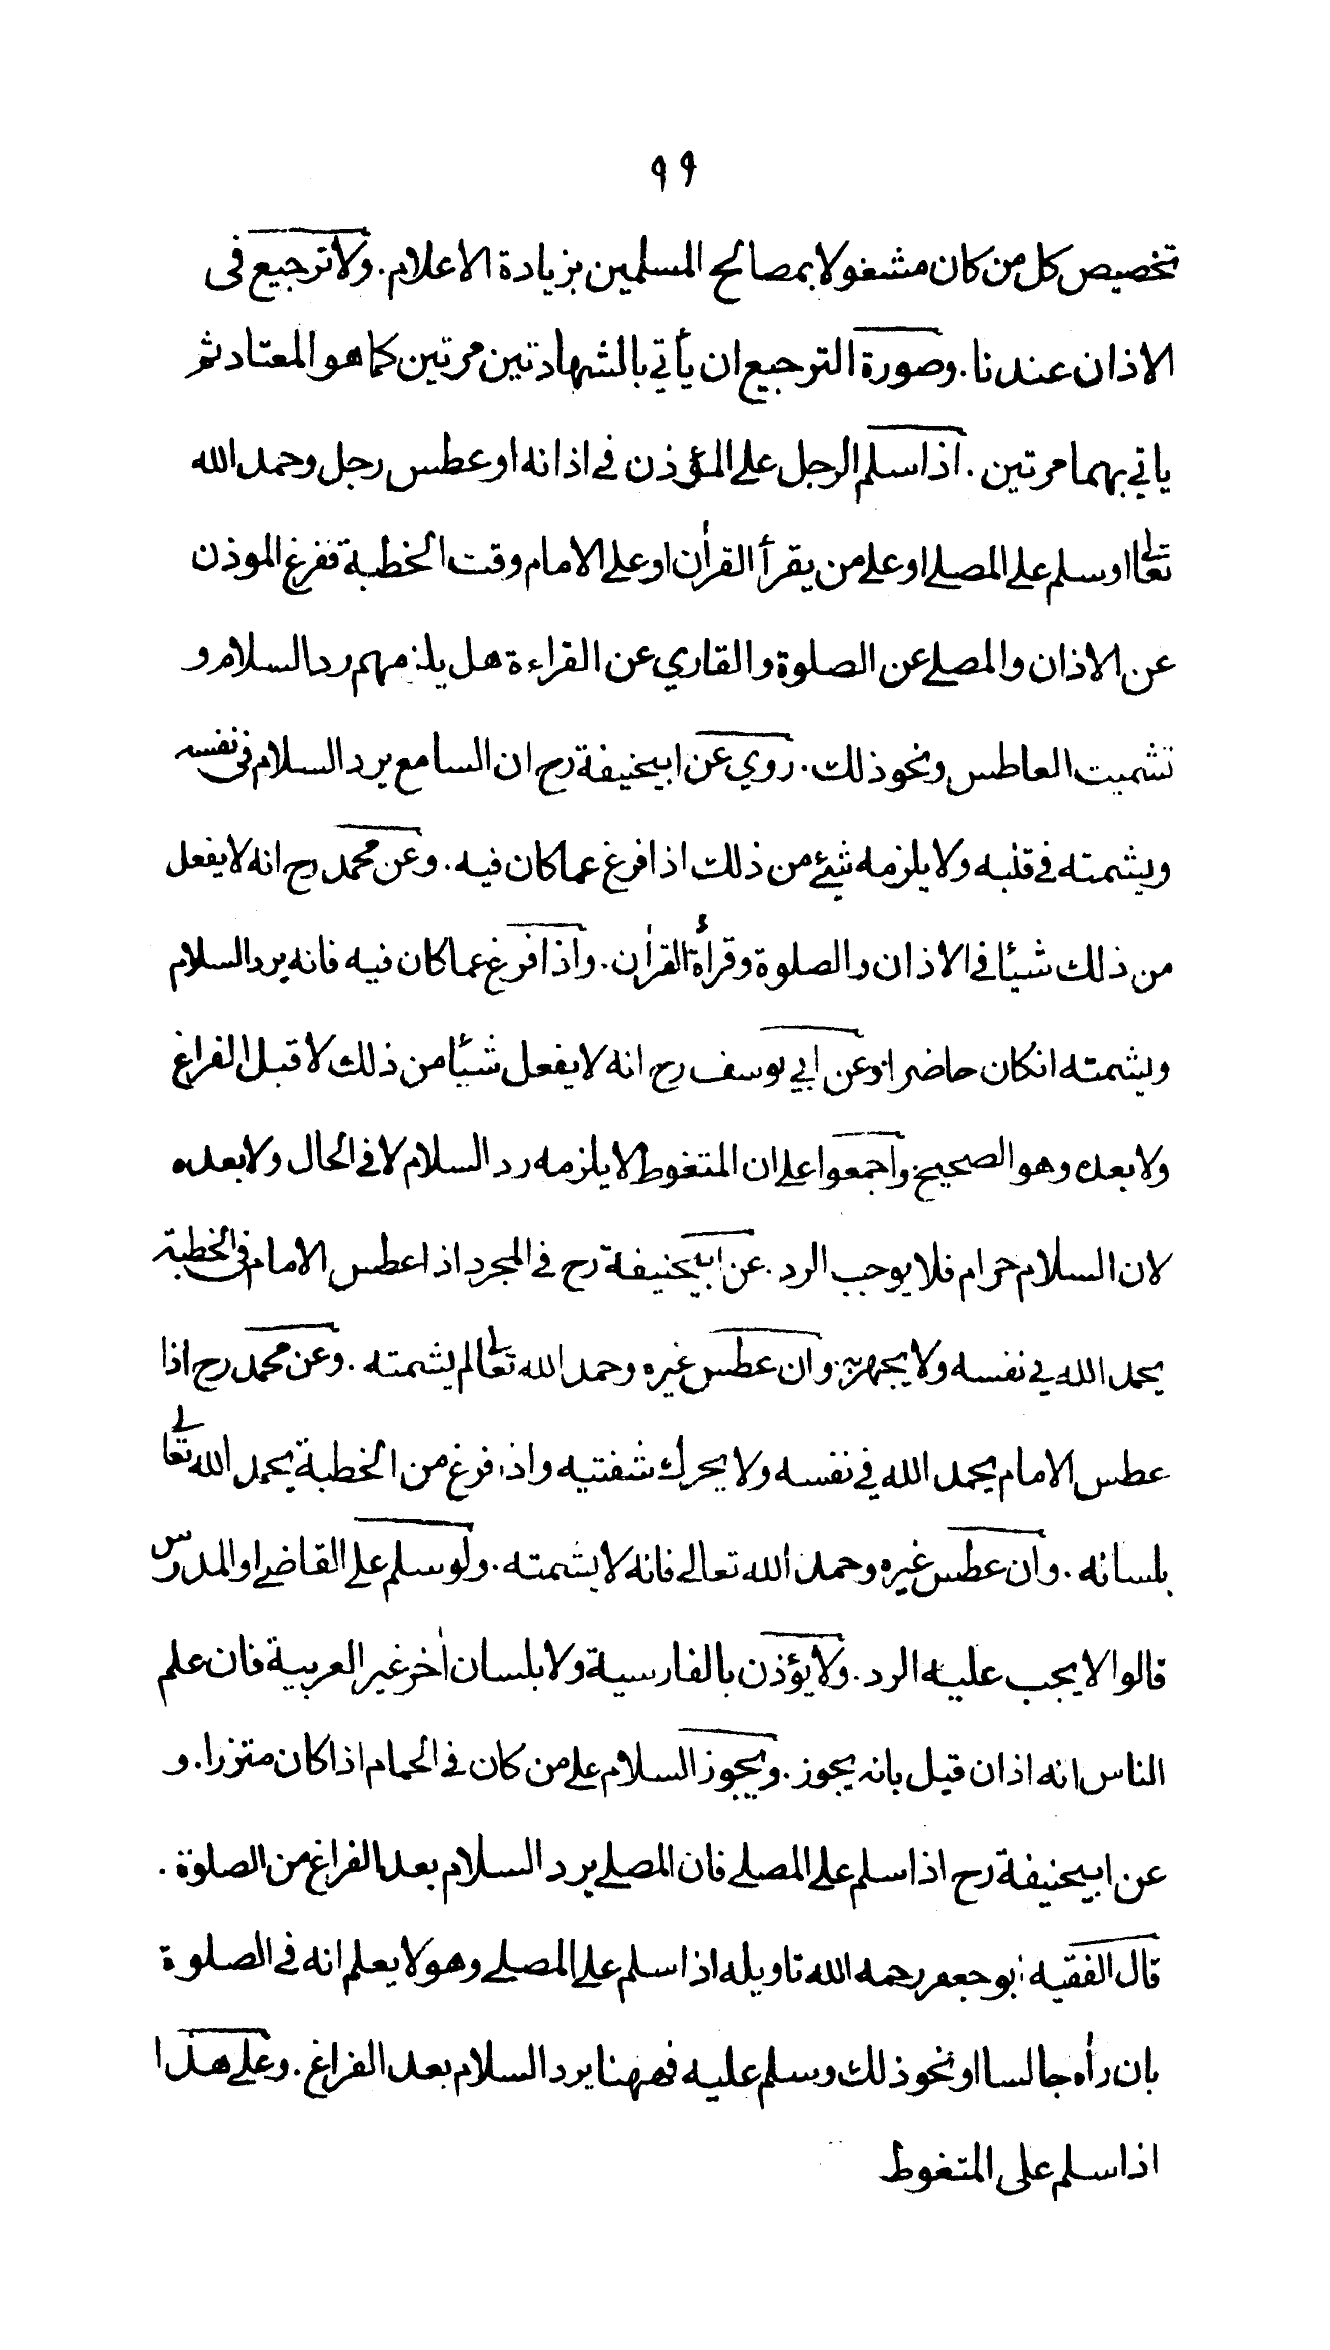 ٩٩
تخصيص كل من كان مشغولا بمصالح المسلمين بزيادة الاعلام. ولا ترجيع فى
الاذان عندنا. وصورة الترجيع ان يأتي بالشهادتين مرتين كما هو المعتاد ثم
ياتي بهما مرتين. اذا سلم الرجل على المؤذن في اذانه او عطس رجل وحمد الله
تعالى او سلم على المصلے او على من يقرأ القرأن او على الامام وقت الخطبة ففرغ الموذن
عن الاذان والمصلے عن الصلوة والقاري عن القراءة هل يلزمهم رد السلام و
تشميت العاطس ونحو ذلك. روي عن ابيحنيفة رح ان السامع يرد السلام فى نفسه
ويشمته في قلبه ولا يلزمه شيئ من ذلك اذا فرغ عما كان فيه. وعن محمد رح انه لا يفعل
من ذلك شيئا في الاذان والصلوة وقرأة القرأن. واذا فرغ عما كان فيه فانه يرد السلام
ويشمته انكان حاضرا وعن ابي يوسف رح انه لا يفعل شيئا من ذلك لا قبل الفراغ
ولا بعده وهو الصحيح واجمعوا على ان المتغوط لا يلزمه رد السلام لا في الحال ولا بعده
لان السلام حرام فلا يوجب الرد. عن ابيحنيفة رح في المجرد اذا عطس الامام فى الخطبة
يحمد الله في نفسه ولا يجهر به. وان عطس غيره وحمد الله تعالى لم يشمته. وعن محمد رح اذا
عطس الامام يحمد الله في نفسه ولا يحرك شفتيه واذا فرغ من الخطبة يحمد الله تعالى
بلسانه. وان عطس غيره وحمد الله تعالى فانه لا يشمته. ولو سلم على القاضے او المدرس
قالوا لا يجب عليه الرد. ولا يؤذن بالفارسية ولا بلسان أخر غير العربية فان علم
الناس انه اذان قيل بانه يجوز. ويجوز السلام على من كان في الحمام اذا كان متزرا. و
عن ابيحنيفة رح اذا سلم على المصلے فان المصلے يرد السلام بعد الفراغ من الصلوة.
قال الفقيه ابو جعفر رحمه الله تاويله اذا سلم على المصلے وهو لا يعلم انه في الصلوة
بان رأه جالسا او نحو ذلك وسلم عليه فههنا يرد السلام بعد الفراغ. وعلى هذا
اذا سلم على المتغوط